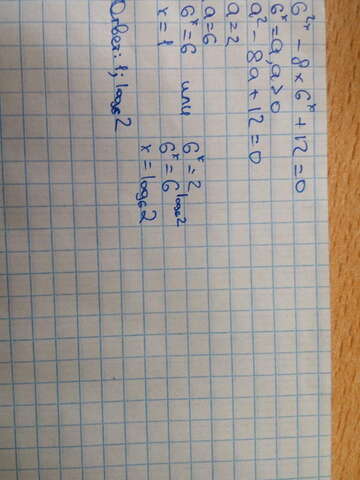 6²ˣ - 8 × 6ˣ + 12 = 0
6ˣ = a, a > 0
a² - 8a + 12 = 0
a = 2
a = 6
6ˣ = 6 или 6ˣ = 2
x = 1 6ˣ = 6^log₆2
x = log₆2
Ответ: 1; log₆2